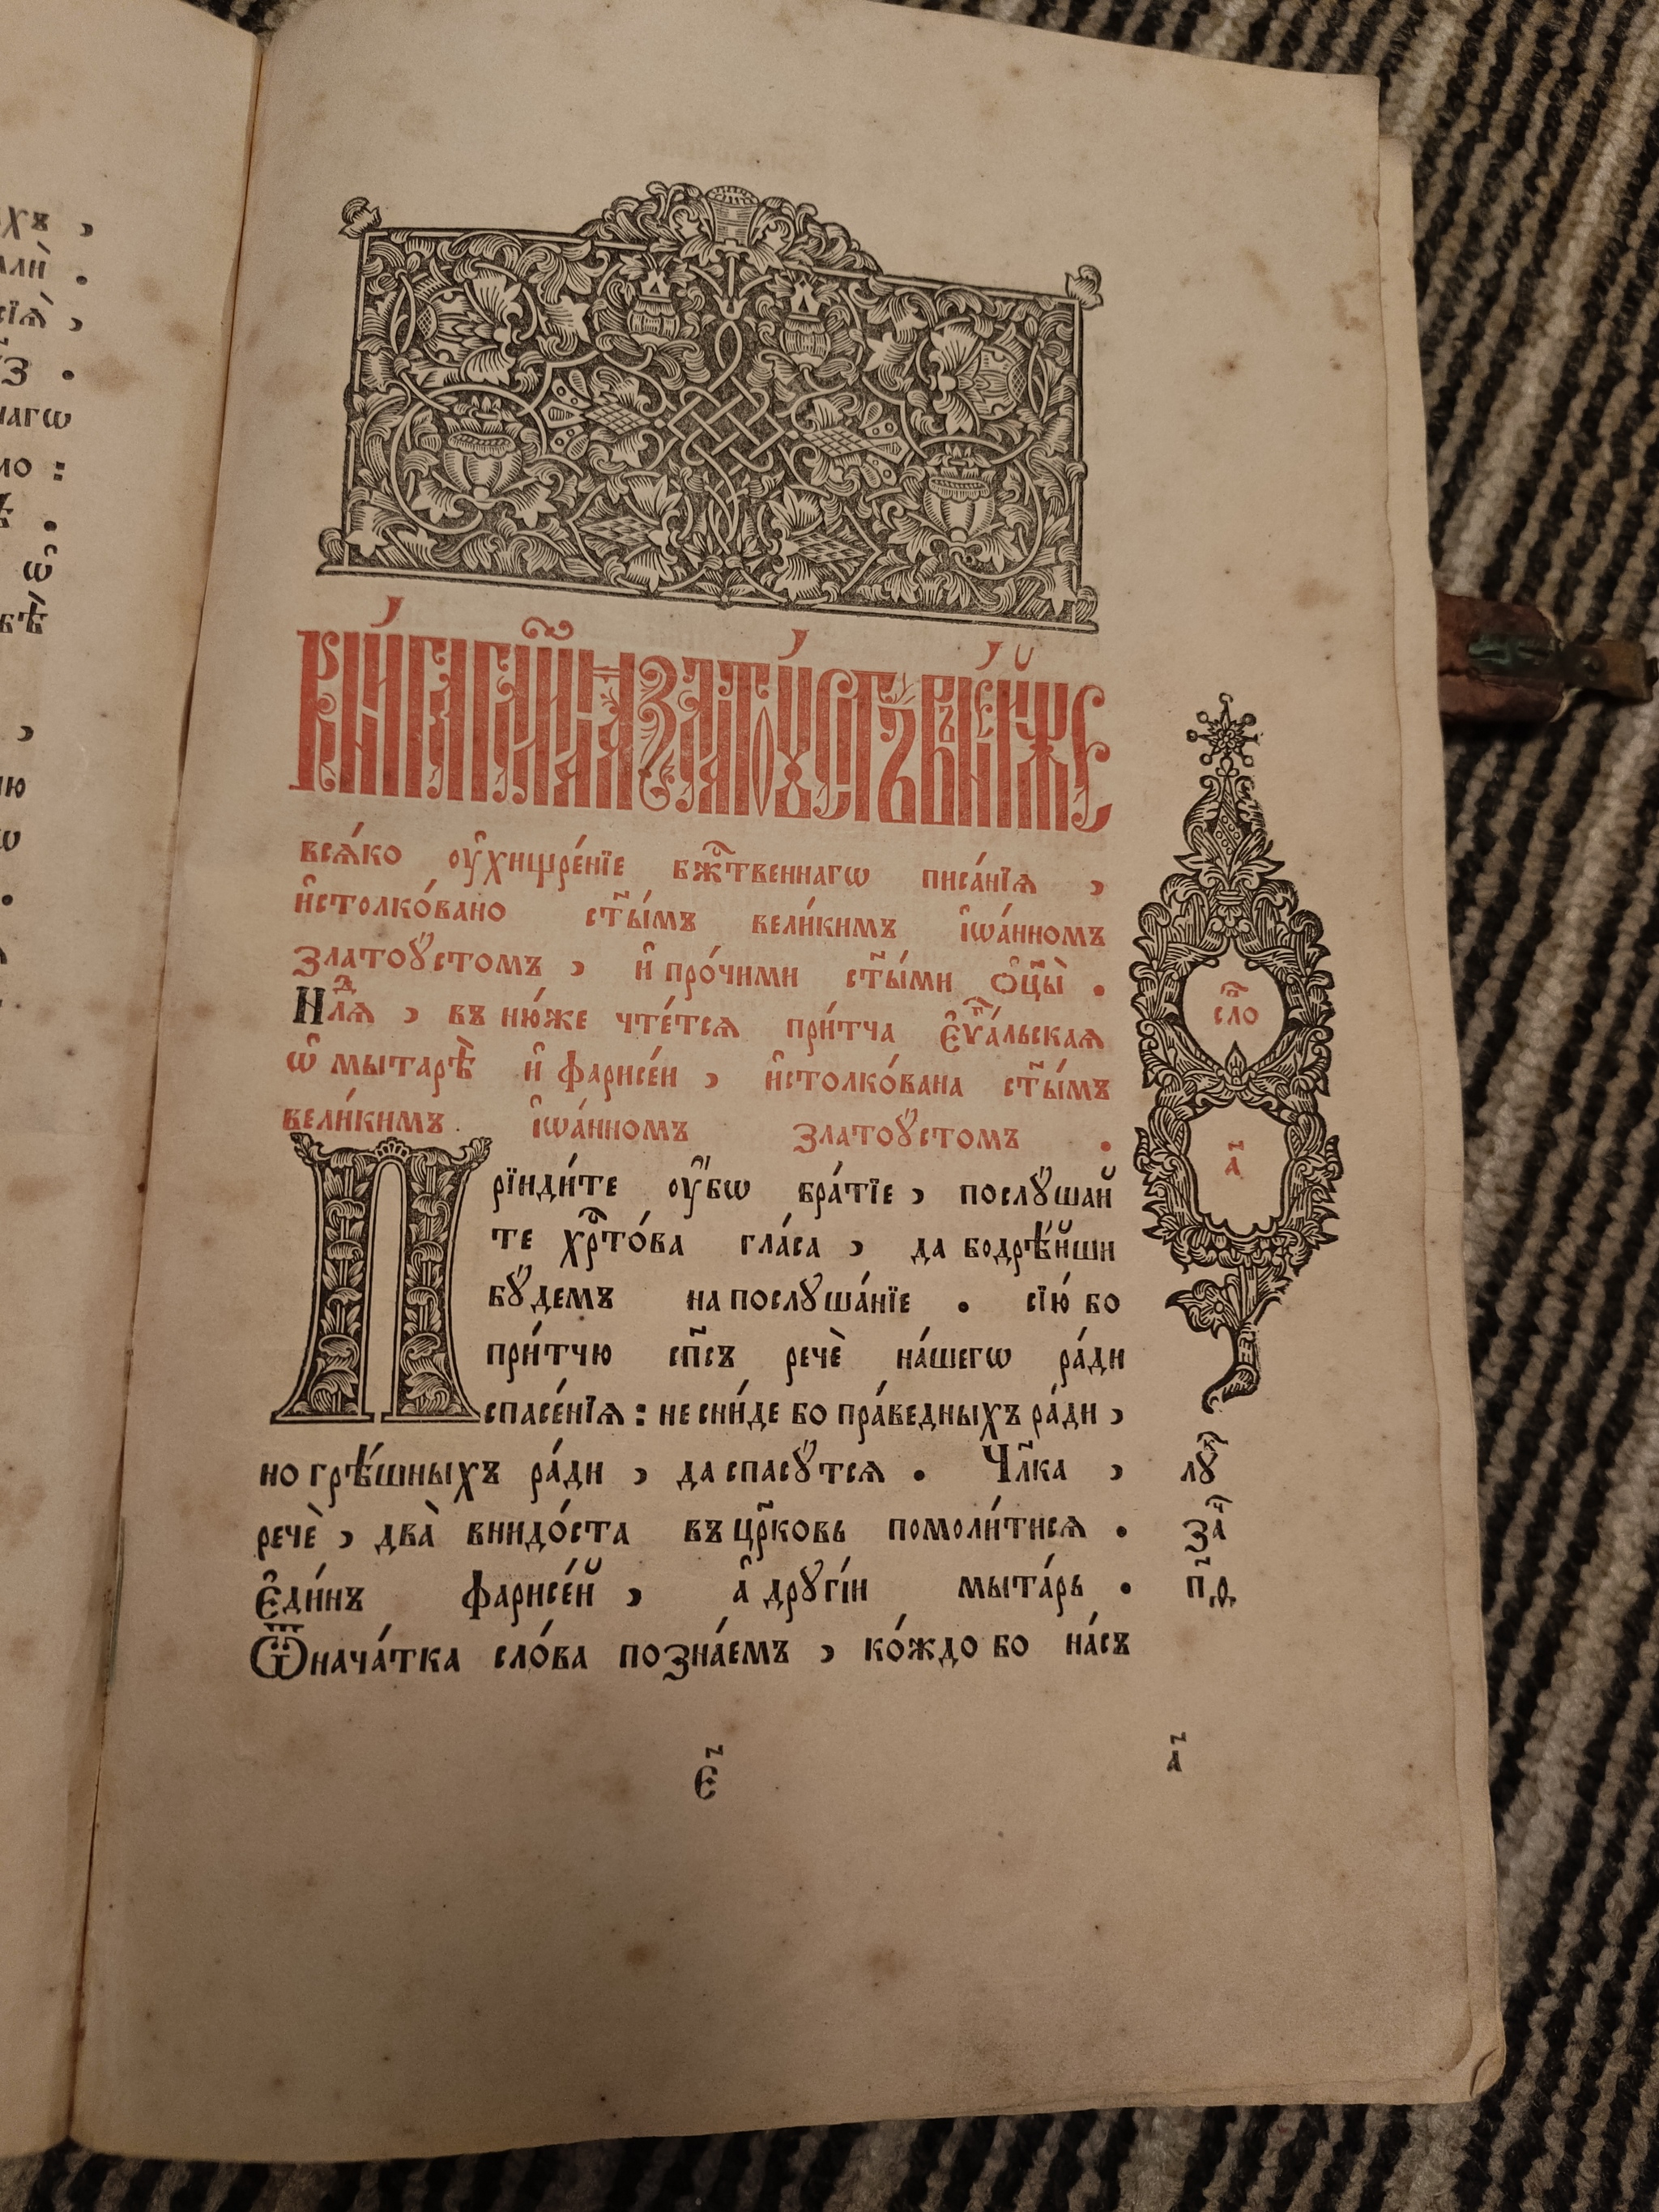 хъ ,
лѝ .
сїѧ̀ ,
нагѡ
ло :
ѡ҆
вѣ̀
,
ню
ѡ
.
Кни́га глаго́лемаѧ златоу́стъ, в не́йже
всѧ́ко ᲂу҆хищре́нїе бж҇твеннагѡ писа́нїѧ ,
и҆столко́вано ст҃ы́мъ вели́кимъ і҆ѡа́нномъ
златоꙋ́стомъ , и҆ про́чими ст҃ы́ми ѻ҆ц҃ы̀ .
Нлⷣѧ , въ ню́же чте́тсѧ при́тча є҆ѵⷢ҇а́льскаѧ
ѡ҆ мытарѣ̀ и҆ фарисе́и , и҆столко́вана ст҃ы́мъ
вели́кимъ і҆ѡа́нномъ златоꙋ́стомъ .
сло
в҇
а҃
Прїиди́те ᲂу҆́бѡ бра́тїе , послꙋ́шай
те хрⷭ҇то́ва гла́са , да бодрѣ́йши
бꙋ́демъ на послꙋша́нїе . сїю́ бо
при́тчю сп҃съ речѐ на́шегѡ ра́ди
спасе́нїѧ : не сни́де бо пра́ведныхъ ра́ди ,
но грѣ́шныхъ ра́ди , да спасꙋ́тсѧ . Чл҃ка ,
речѐ , два̀ внидо́ста въ цр҃ковь помоли́тисѧ .
є҆ди́нъ фарисе́й , а҆ дрꙋгі́и мыта́рь .
Ѿ нача́тка сло́ва позна́емъ , ко́ждо бо на́съ
лꙋⷦ҇
заⷱ҇
п҃ѳ
є҃
а҃